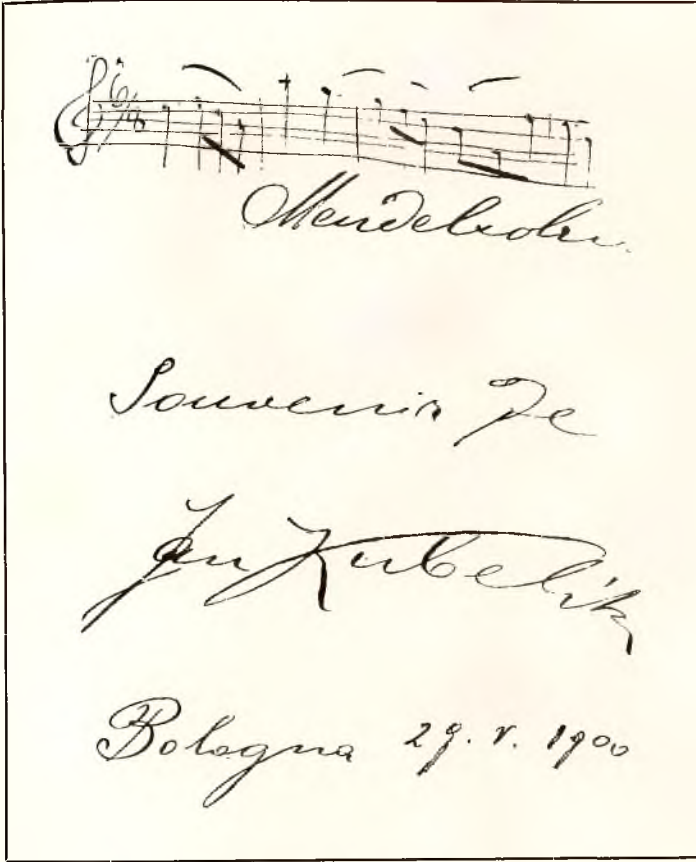 Mendelsohn
Souvenir de
Jan Kubelik
Bologna 29. V. 1900